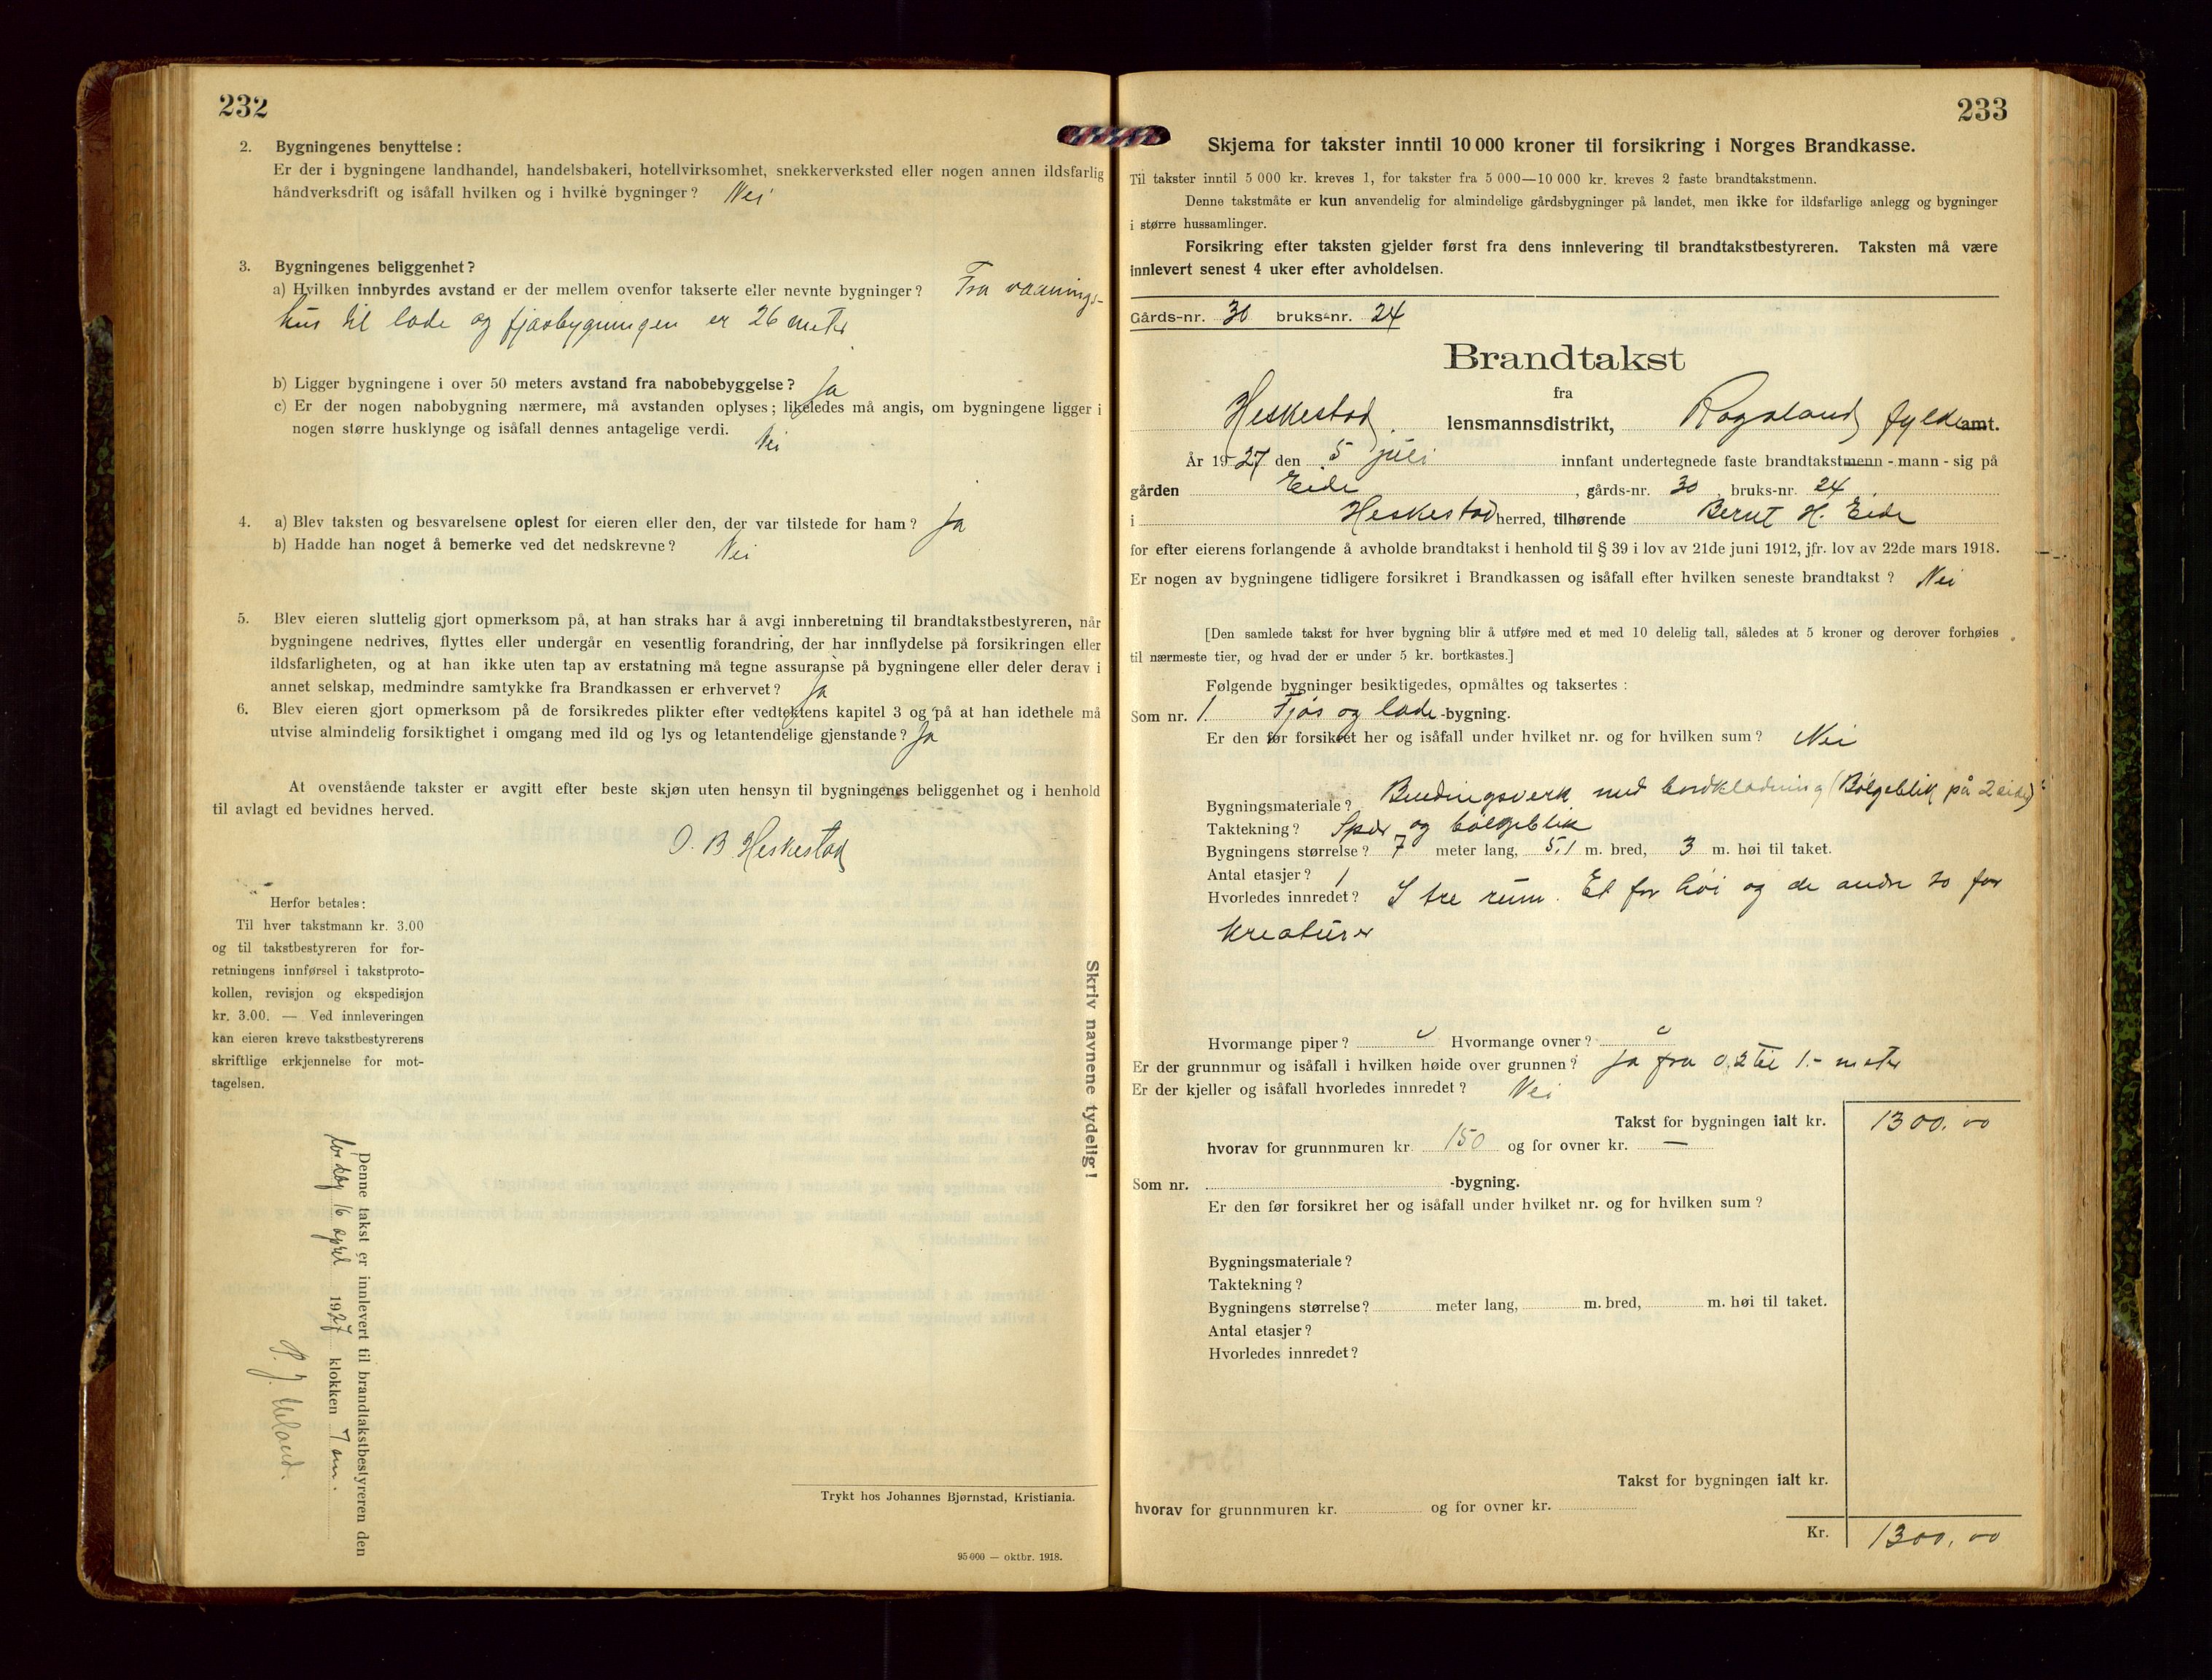 232
2. Bygningenes benyttelse :
Er der i bygningene landhandel, handelsbakeri, hotellvirksomhet, snekkerverksted eller nogen annen ildsfarlig
håndverksdrift og isåfall hvilken og i hvilke bygninger? Nei
3. Bygningenes beliggenhet?
a) Hvilken innbyrdes avstand er der mellem ovenfor takserte eller nevnte bygninger? Fra vaanings-
hus til lade og fjøsbygningen er 26 meter
b) Ligger bygningene i over 50 meters avstand fra nabobebyggelse? Ja
c) Er der nogen nabobygning nærmere, må avstanden oplyses; likeledes må angis, om bygningene ligger i
nogen større husklynge og isåfall dennes antagelige verdi. Nei
4. a) Blev taksten og besvarelsene oplest for eieren eller den, der var tilstede for ham? Ja
b) Hadde han noget å bemerke ved det nedskrevne? Nei
5. Blev eieren sluttelig gjort opmerksom på, at han straks har å avgi innberetning til brandtakstbestyreren, når
bygningene nedrives, flyttes eller undergår en vesentlig forandring, der har innflydelse på forsikringen eller
ildsfarligheten, og at han ikke uten tap av erstatning må tegne assuranse på bygningene eller deler derav i
annet selskap, medmindre samtykke fra Brandkassen er erhvervet? Ja
6. Blev eieren gjort opmerksom på de forsikredes plikter efter vedtektens kapitel 3 og på at han idethele må
utvise almindelig forsiktighet i omgang med ild og lys og letantendelige gjenstande? Ja
At ovenstående takster er avgitt efter beste skjøn uten hensyn til bygningenes beliggenhet og i henhold
til avlagt ed bevidnes herved.
O. B Heskestad
Herfor betales:
Til hver takstmann kr. 3.00
og til takstbestyreren for for-
retningens innførsel i takstproto-
kollen, revisjon og ekspedisjon
kr. 3.00. — Ved innleveringen
kan eieren kreve takstbestyrerens
skriftlige erkjennelse for mot-
tagelsen.
Denne takst er innlevert til brandtakstbestyreren den
16 april 1927 klokken 7 em.
Skriv navnene tydelig!
Trykt hos Johannes Bjørnstad, Kristiania.
95 000 — oktbr. 1918.
233
Skjema for takster inntil 10 000 kroner til forsikring i Norges Brandkasse.
Til takster inntil 5 000 kr. kreves 1, for takster fra 5 000—10 000 kr. kreves 2 faste brandtakstmenn.
Denne takstmåte er kun anvendelig for almindelige gårdsbygninger på landet, men ikke for ildsfarlige anlegg og bygninger
i større hussamlinger.
Forsikring efter taksten gjelder først fra dens innlevering til brandtakstbestyreren. Taksten må være
innlevert senest 4 uker efter avholdelsen.
Gårds-nr. 30 bruks-nr. 24
Brandtakst
fra
Heskestad lensmannsdistrikt, Rogaland fylde amt.
År 1927 den 5 juli innfant undertegnede faste brandtakstmenn - mann - sig på
gården Eide, gårds-nr. 30 bruks-nr. 24
i Heskestad herred, tilhørende Bernt H. Eide
for efter eierens forlangende å avholde brandtakst i henhold til § 39 i lov av 21de juni 1912, jfr. lov av 22de mars 1918.
Er nogen av bygningene tidligere forsikret i Brandkassen og isåfall efter hvilken seneste brandtakst ? Nei
[Den samlede takst for hver bygning blir å utføre med et med 10 delelig tall, således at 5 kroner og derover forhøies
til nærmeste tier, og hvad der er under 5 kr. bortkastes.]
Følgende bygninger besiktigedes, opmåltes og taksertes :
Som nr. 1. Fjøs og lade -bygning.
Er den før forsikret her og isåfall under hvilket nr. og for hvilken sum? Nei
Bygningsmateriale? Bindingsverk med bordkledning (Bølgeblik på 2 sider)
Taktekning? Spær og bølgeblik
Bygningens størrelse? 7 meter lang, 5,1 m. bred, 3 m. høi til taket.
Antal etasjer? 1
Hvorledes innredet? I tre rum. Et for høi og de andre to for
kreaturer
Hvormange piper? 0 Hvormange ovner? 0
Er der grunnmur og isåfall i hvilken høide over grunnen? Ja fra 0,2 til 1.- meter
Er der kjeller og isåfall hvorledes innredet? Nei
Takst for bygningen ialt kr. 1300.00
hvorav for grunnmuren kr. 150 og for ovner kr. —
Som nr. -bygning.
Er den før forsikret her og isåfall under hvilket nr. og for hvilken sum?
Bygningsmateriale?
Taktekning?
Bygningens størrelse? meter lang, m. bred, m. høi til taket.
Antal etasjer?
Hvorledes innredet?
Takst for bygningen ialt kr.
hvorav for grunnmuren kr. og for ovner kr.
Kr. 1300.00